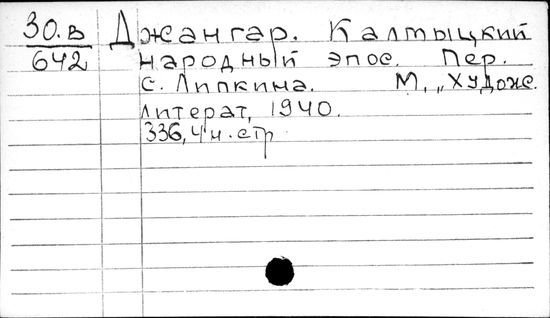 30.В Джангар. Калмыцкий
642 народный эпос. Пер.
С. Липкина. М., „Художс.
литерат, 1940.
336, 4 н. стр